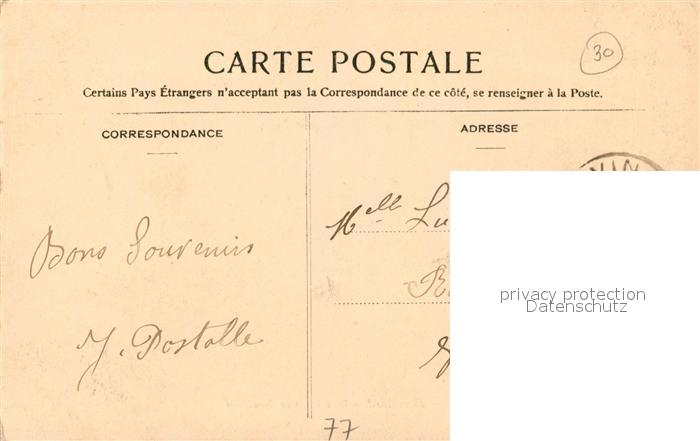 30
CARTE POSTALE
Certains Pays Étrangers n'acceptant pas la Correspondance de ce côté, se renseigner à la Poste.
CORRESPONDANCE
ADRESSE
Bons Souvenirs
Y. Postolle
Melle
privacy protection
Datenschutz
77